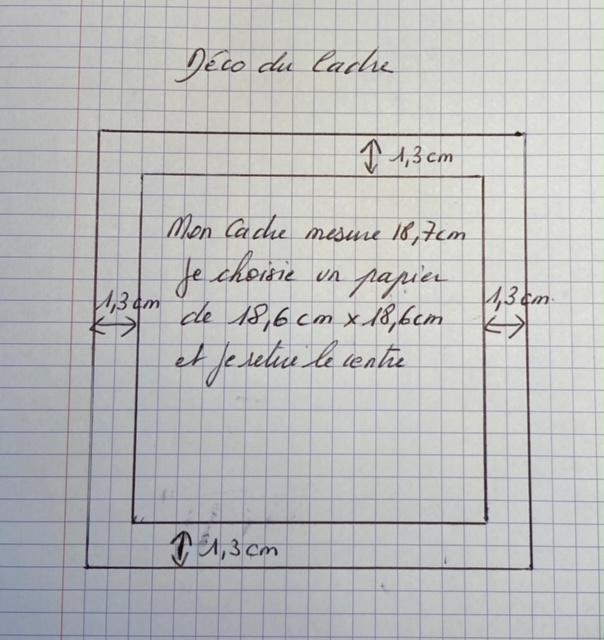 Déco du Cadre
1,3 cm
Mon Cadre mesure 18,7cm
Je choisie un papier
1,3 cm
1,3 cm.
de 18,6 cm x 18,6cm
et je retire le centre
1,3 cm